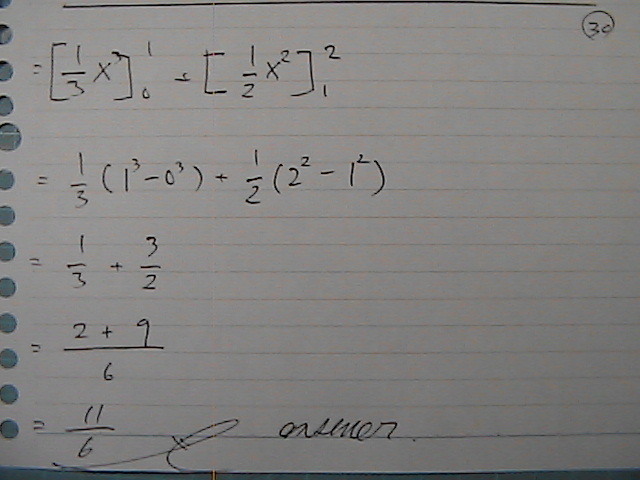 30
= [1/3 x³]₀¹ + [1/2 x²]₁²
= 1/3 (1³ - 0³) + 1/2 (2² - 1²)
= 1/3 + 3/2
= (2 + 9)/6
= 11/6 answer.